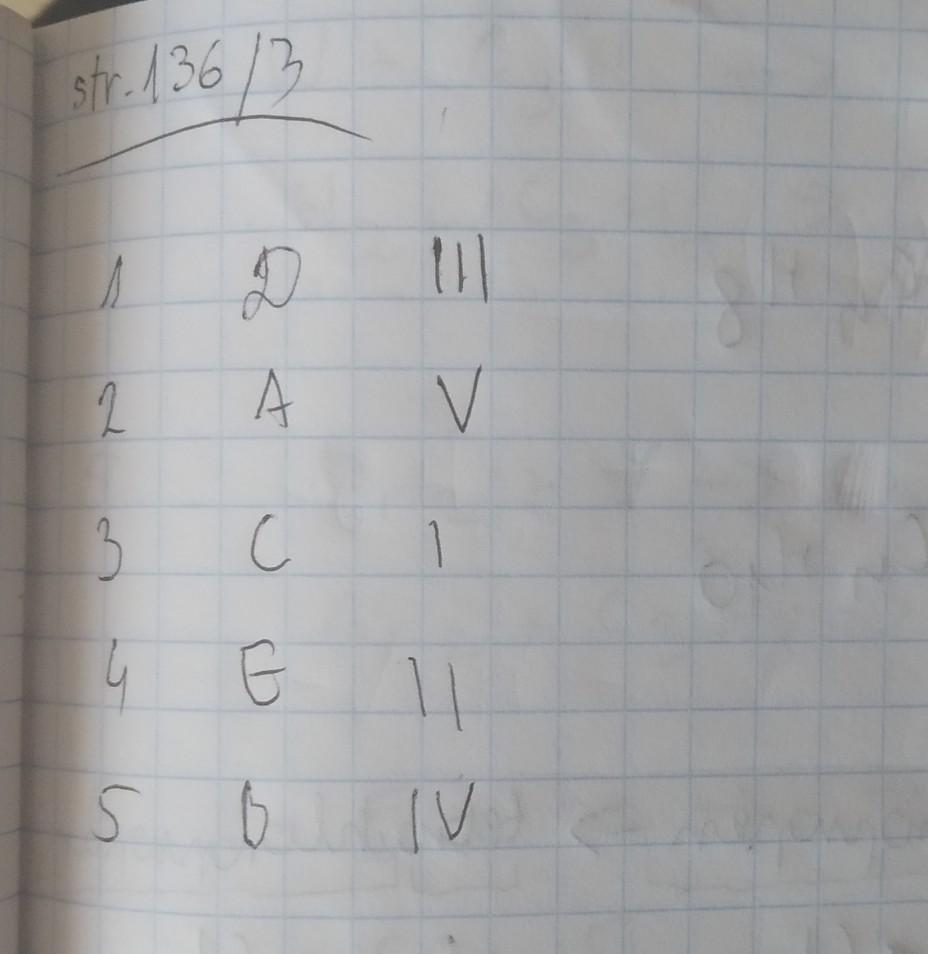 str. 136/3
1 D III
2 A V
3 C I
4 E II
5 b IV